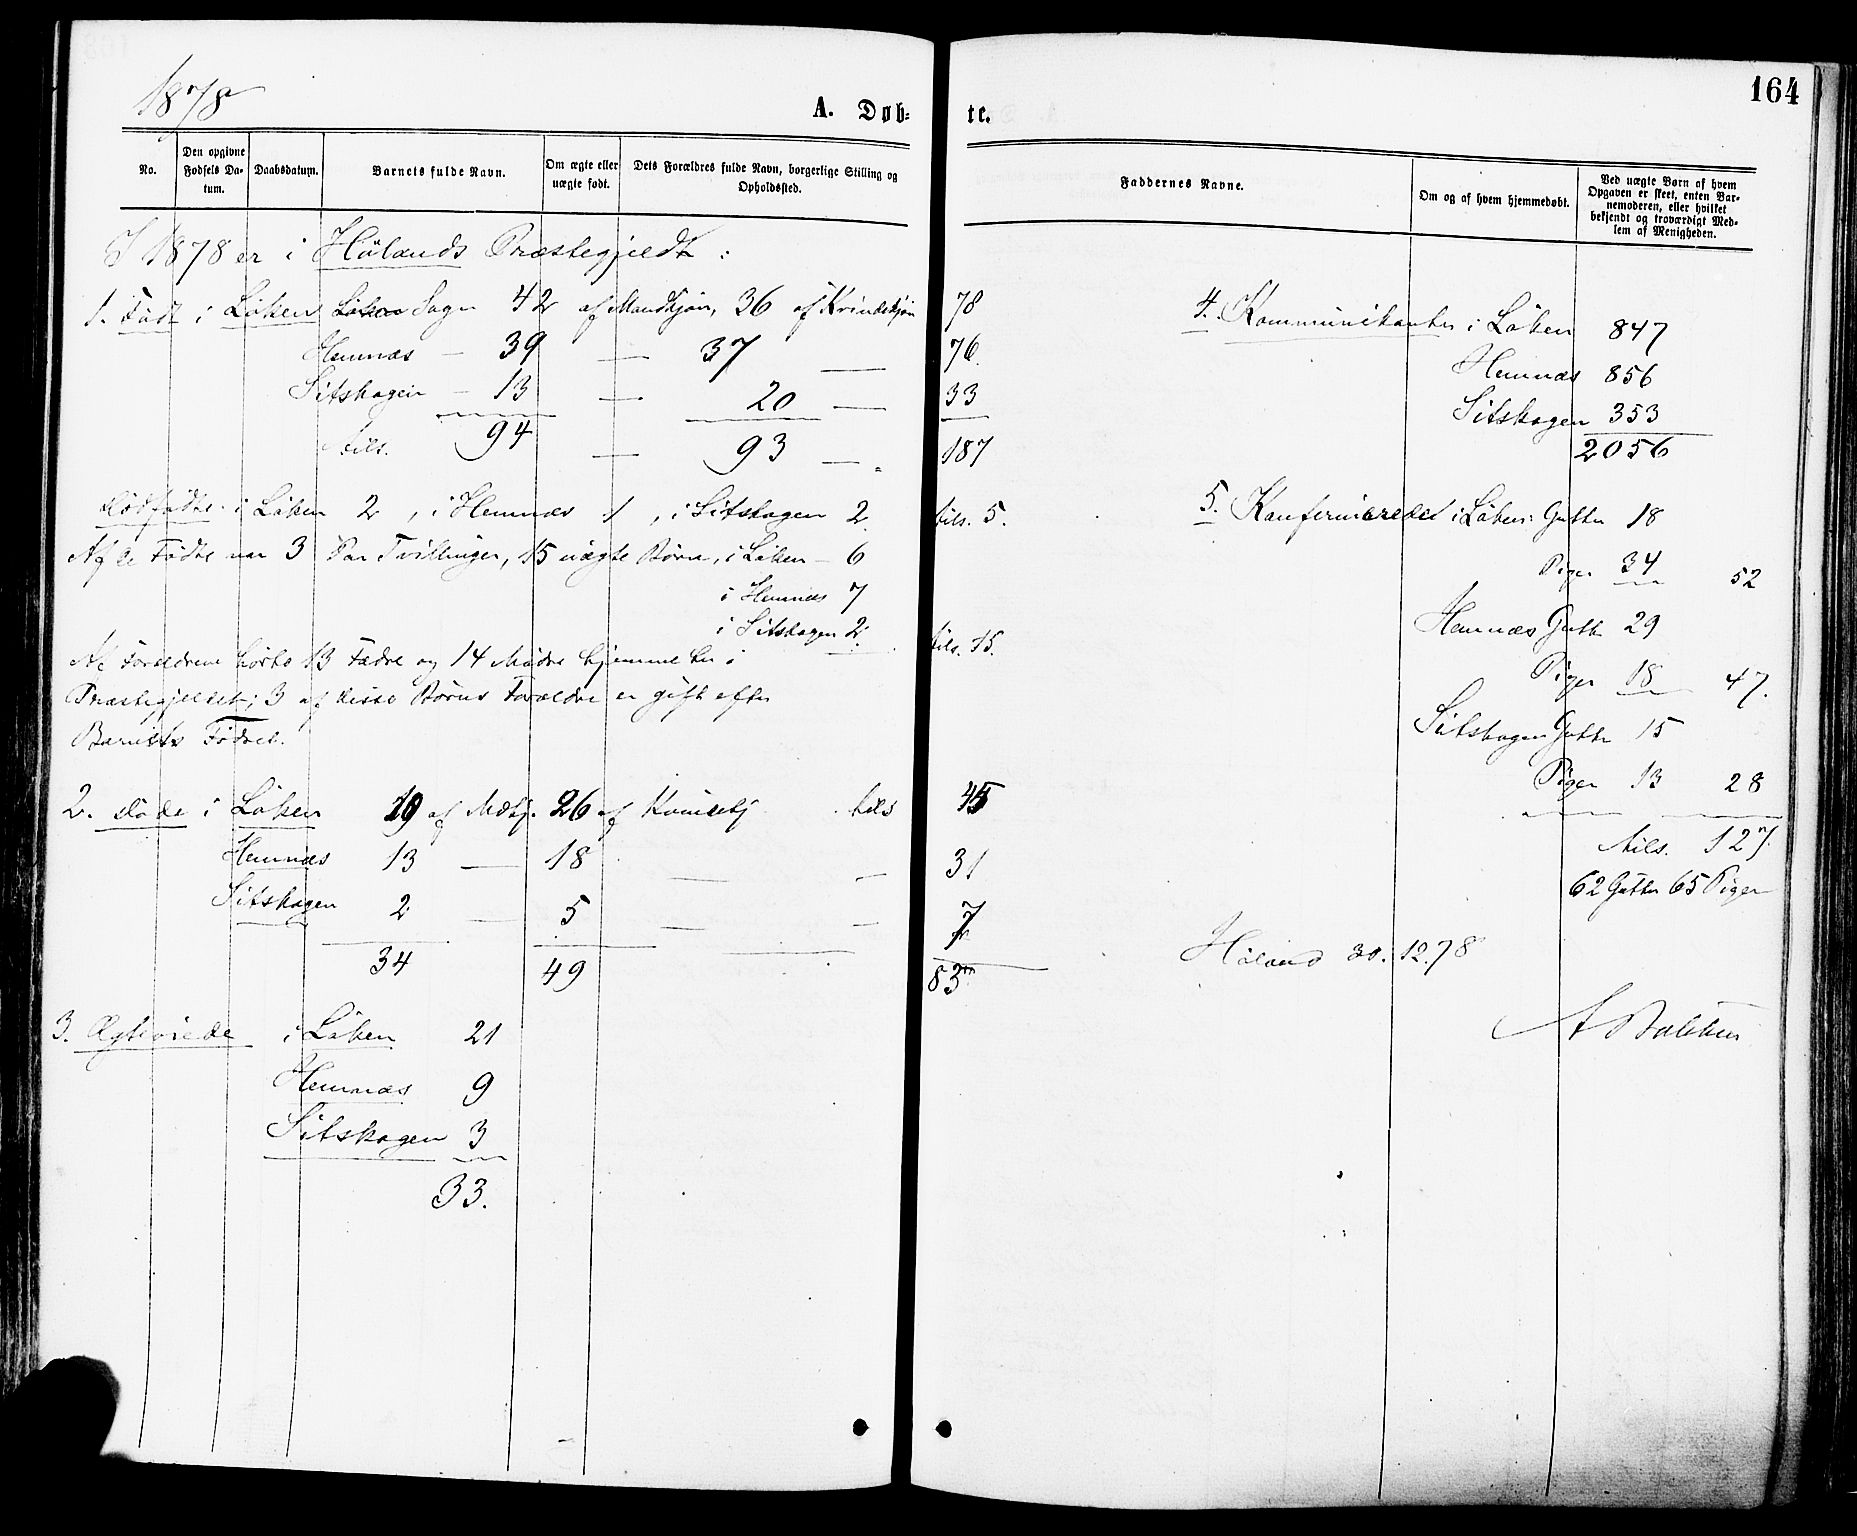 164
1878
A. Døb- te.
No.
Den opgivne Fødsels Da-tum.
Daabsdatum.
Barnets fulde Navn.
Om ægte eller uægte født.
Dets Forældres fulde Navn, borgerlige Stilling og Opholdssted.
Faddernes Navne.
Om og af hvem hjemmedøbt.
Ved uægte Børn af hvem Opgaven er skeet, enten Bar-nemoderen, eller hvilket bekjendt og troværdigt Med-lem af Menigheden.
I 1878 er i Hølands Præstegjeldt :
1. Født i Løken Løken Sogn 42 af Mandkjøn, 36 af Kvindekjøn 78
Hemnæs — 39 — 37 — 76.
Sitskogen — 13 — 20 — 33
tils. 94 — 93 — " 187
Dødfødte i Løken 2, i Hemnæs 1, i Sitskogen 2 tils. 5.
Af de Fødte var 3 Par Tvillinger, 15 uægte Børn, i Løken — 6
i Hemnæs 7
i Sitskogen 2. tils. 15.
Af Forældrene hørte 13 Fædre og 14 Mødre hjemme her i
Præstegjeldet; 3 af disse Børns Forældre er gift efter
Barnets Fødsel.
2. Døde i Løken 19 af Mdkj. 26 af Kvindekj tils 45
Hemnæs 13 — 18 — — 31
Sitskogen 2 — 5 — — 7
34 49 83
3. Ægteviede i Løken 21
Hemnæs 9
Sitskogen 3
33.
4. Kommunikanter i Løken 847
Hemnæs 856
Sitskogen 353
2056
5. Konfirmerede i Løken: Gutter 18
Piger 34 52
Hemnæs Gutt 29
Piger 18 47.
Sitskogen Gutter 15
Piger 13 28
tils. 127.
62 Gutter 65 Piger
Høland 30.12.78